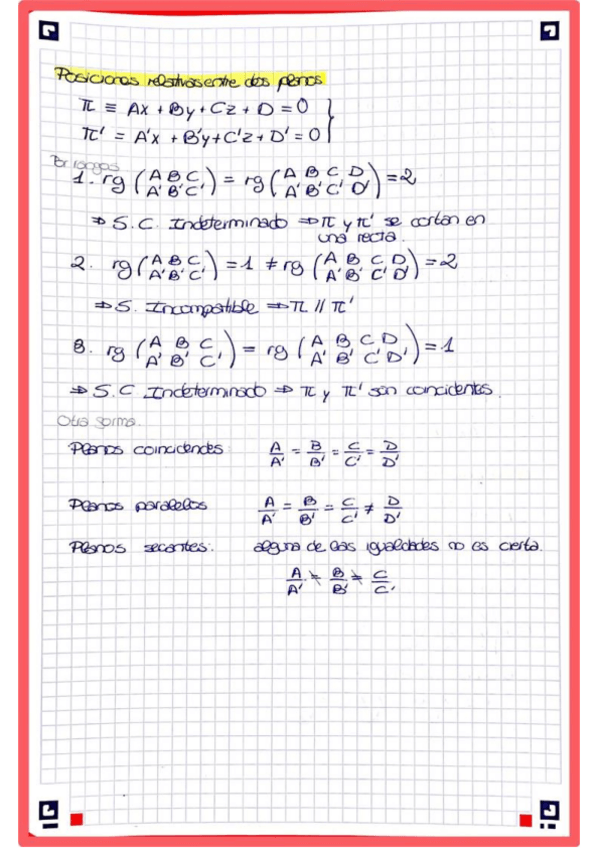 Posiciones relativas entre dos planos
π ≡ Ax + By + Cz + D = 0
π' = A'x + B'y + C'z + D' = 0
Por rangos
1. rg (A B C / A' B' C') = rg (A B C D / A' B' C' D') = 2
⇒ S.C. Indeterminado ⇒ π y π' se cortan en
una recta.
2. rg (A B C / A' B' C') = 1 ≠ rg (A B C D / A' B' C' D') = 2
⇒ S. Incompatible ⇒ π // π'
3. rg (A B C / A' B' C') = rg (A B C D / A' B' C' D') = 1
⇒ S.C. Indeterminado ⇒ π y π' son coincidentes.
Otra forma.
Planos coincidendes A/A' = B/B' = C/C' = D/D'
Planos paralelos A/A' = B/B' = C/C' ≠ D/D'
Planos secantes: alguna de las igualdades no es cierta.
A/A' ≠ B/B' ≠ C/C'